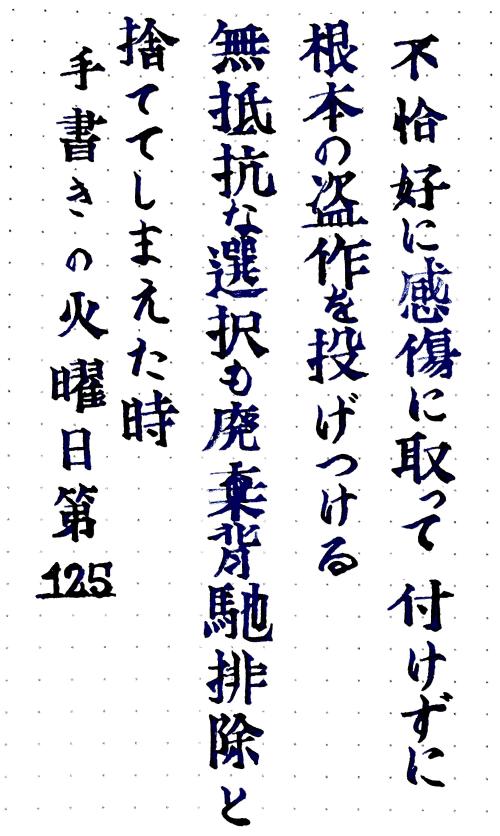 不恰好に感傷に取って付けずに
根本の盗作を投げつける
無抵抗な選択も廃棄背馳排除と
捨ててしまえた時
手書きの火曜日第125